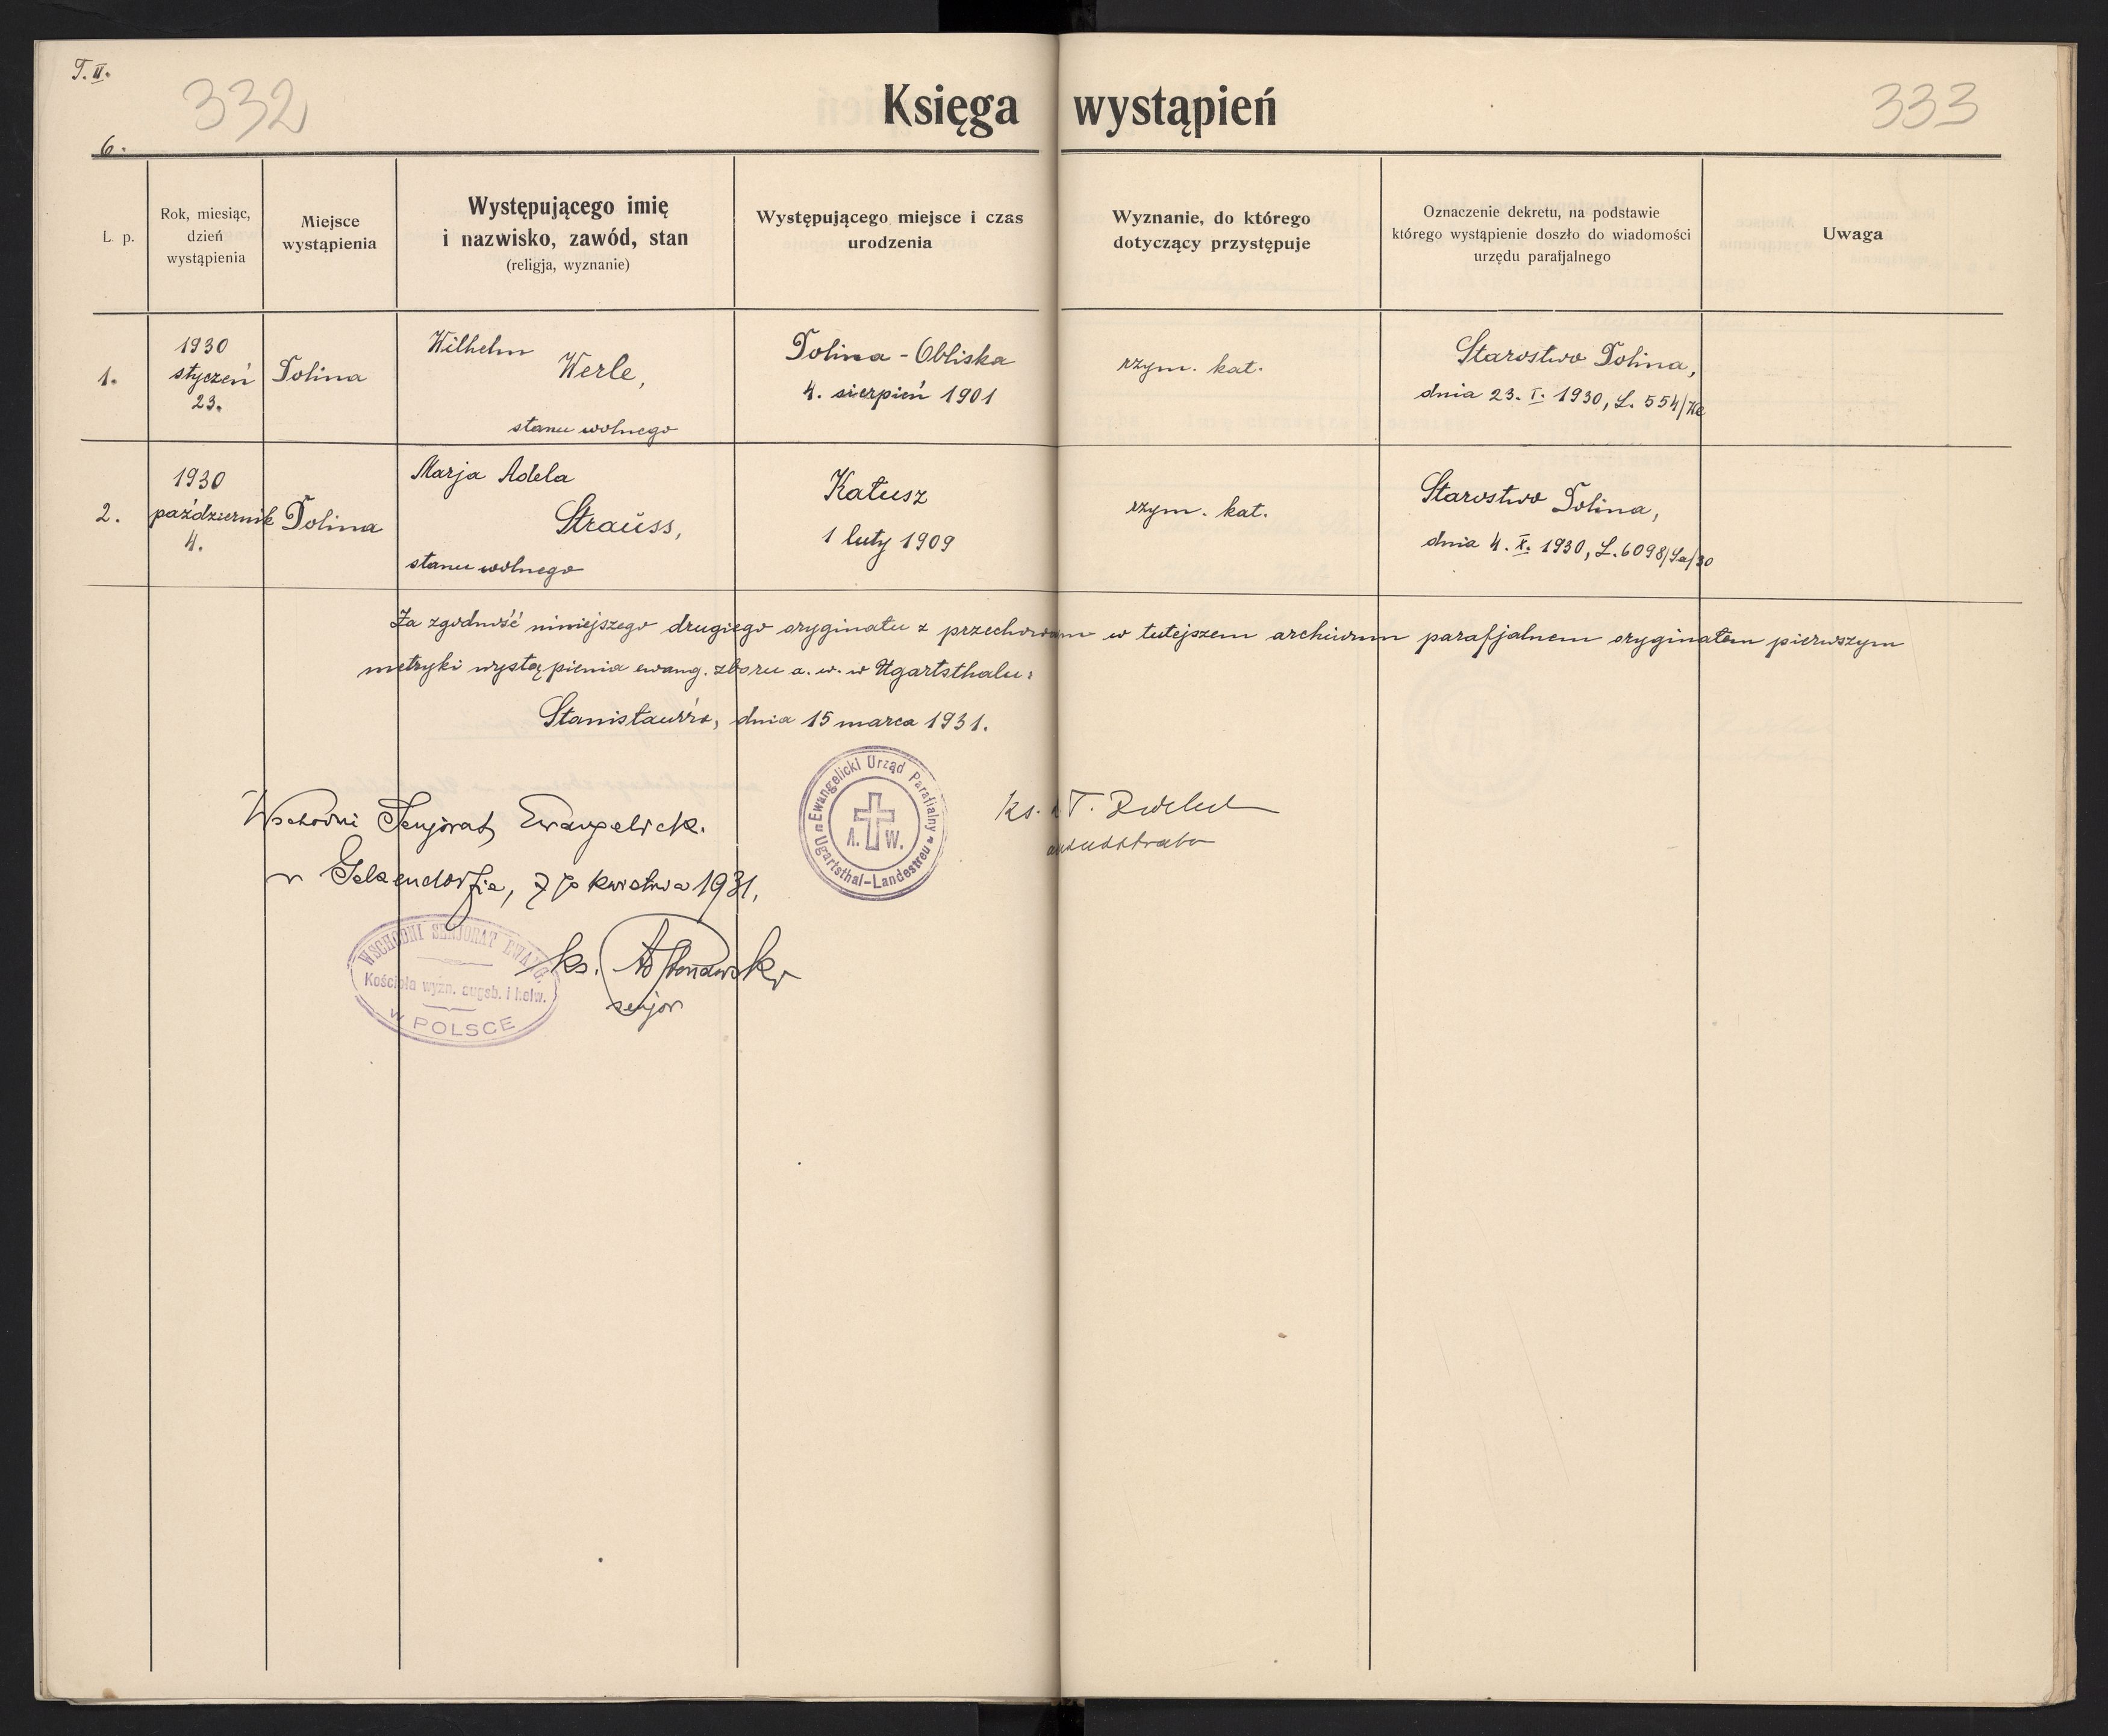 T. II.
332
333
Księga wystąpień
6.
L. p.
Rok, miesiąc,
dzień
wystąpienia
Miejsce
wystąpienia
Występującego imię
i nazwisko, zawód, stan
(religja, wyznanie)
Występującego miejsce i czas
urodzenia
Wyznanie, do którego
dotyczący przystępuje
Oznaczenie dekretu, na podstawie
którego wystąpienie doszło do wiadomości
urzędu parafjalnego
Uwaga
1.
1930
styczeń
23.
Dolina
Wilhelm
Werle,
stanu wolnego
Dolina - Obliska
4. sierpień 1901
rzym. kat.
Starostwo Dolina,
dnia 23. I. 1930, L. 554/
2.
1930
październik
4.
Dolina
Marja Adela
Strauss,
stanu wolnego
Kałusz
1 luty 1909
rzym. kat.
Starostwo Dolina,
dnia 4. X. 1930, L. 6098/Sa/30
Za zgodność niniejszego drugiego oryginału z przechowanym w tutejszem archiwum parafjalnem oryginałem pierwszym
metryki wystąpienia ewang. zboru a. w. w Ugartsthalu:
Stanisławów, dnia 15 marca 1931.
Ewangelicki Urząd Parafialny
w Ugartsthal-Landestreu
A. W.
Ks.
administrator
Wschodni Senjorat Ewangelick.
w Gelsendorfie, 7 go kwietnia 1931.
WSCHODNI SENJORAT EWANG.
Kościoła wyzn. augsb. i helw.
w POLSCE
ks.
senjor